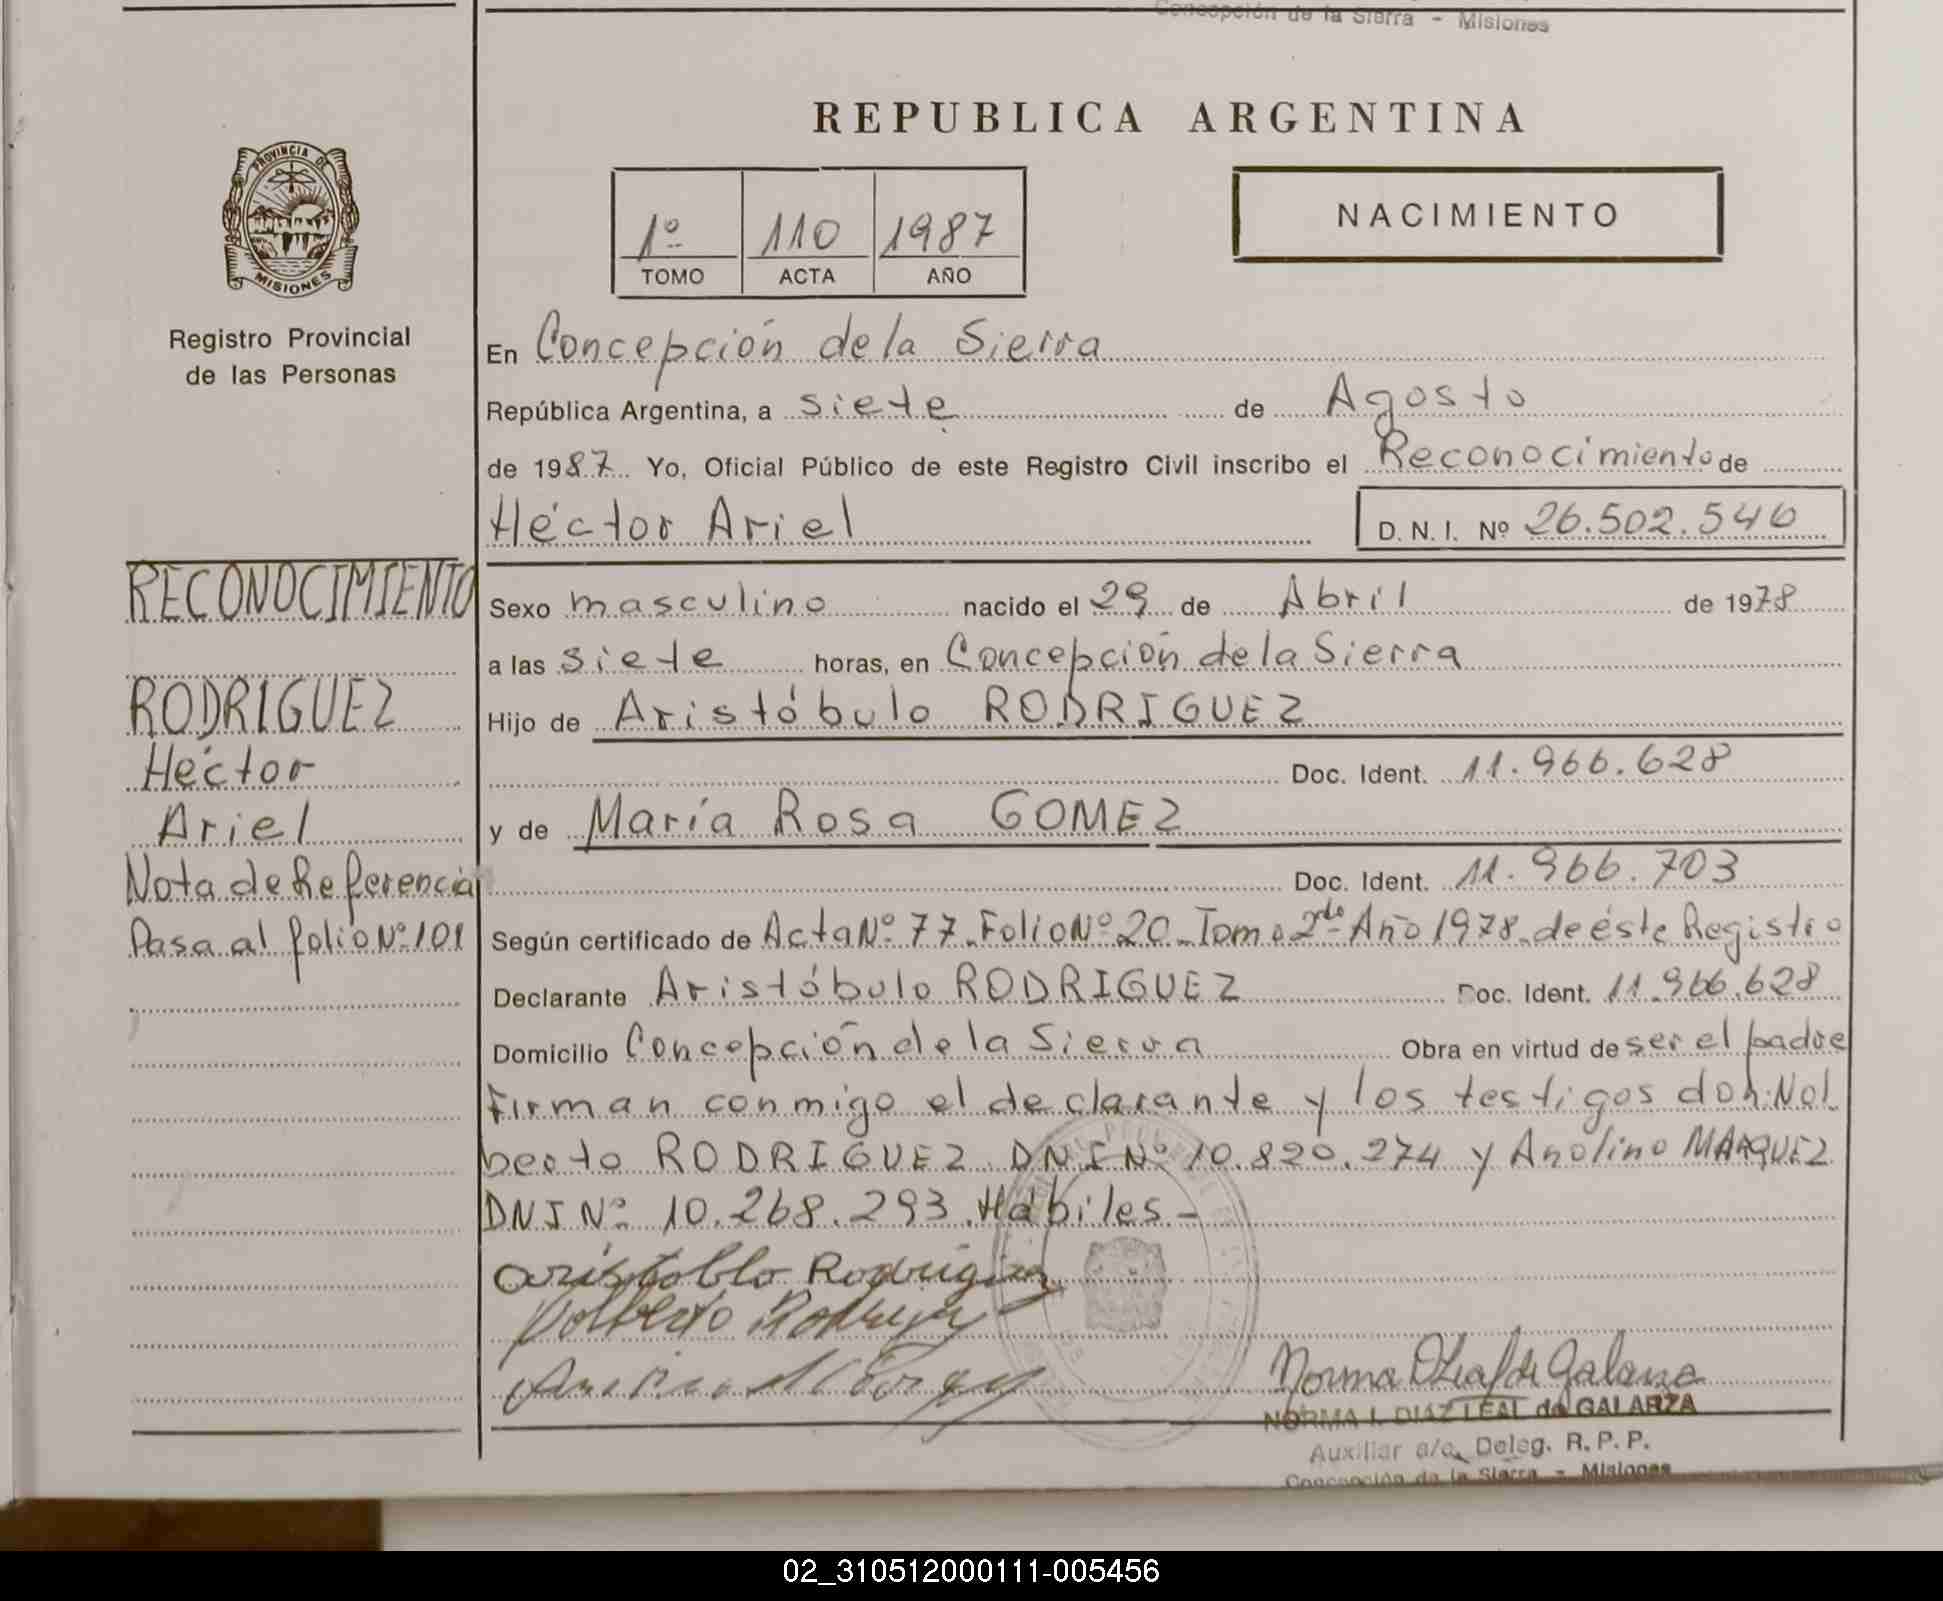 Concepción de la Sierra - Misiones
REPUBLICA ARGENTINA
PROVINCIA DE
MISIONES
Registro Provincial
de las Personas
1º 110 1987
TOMO ACTA AÑO
NACIMIENTO
En Concepción de la Sierra
República Argentina, a siete de Agosto
de 1987. Yo, Oficial Público de este Registro Civil inscribo el Reconocimiento de
Héctor Ariel D. N. I. Nº 26.502.546
RECONOCIMIENTO
RODRIGUEZ
Héctor
Ariel
Nota de Referencia
Pasa al folio Nº 101
Sexo masculino nacido el 29 de Abril de 1978
a las siete horas, en Concepción de la Sierra
Hijo de Aristóbulo RODRIGUEZ
Doc. Ident. 11.966.628
y de María Rosa GOMEZ
Doc. Ident. 11.966.703
Según certificado de Acta Nº 77 - Folio Nº 20 - Tomo 2do - Año 1978 - de éste Registro
Declarante Aristóbulo RODRIGUEZ Doc. Ident. 11.966.628
Domicilio Concepción de la Sierra Obra en virtud de ser el padre
Firman conmigo el declarante y los testigos don: Nol
berto RODRIGUEZ DNI Nº 10.820.274 y Anolino MARQUEZ
DNI Nº 10.268.293. Hábiles -
aristoblo Rodriguez
Nolberto Rodriguez
Norma D Leal de Galarza
NORMA I. DIAZ LEAL de GALARZA
Auxiliar a/c. Deleg. R. P. P.
Concepción de la Sierra - Misiones
02_310512000111-005456